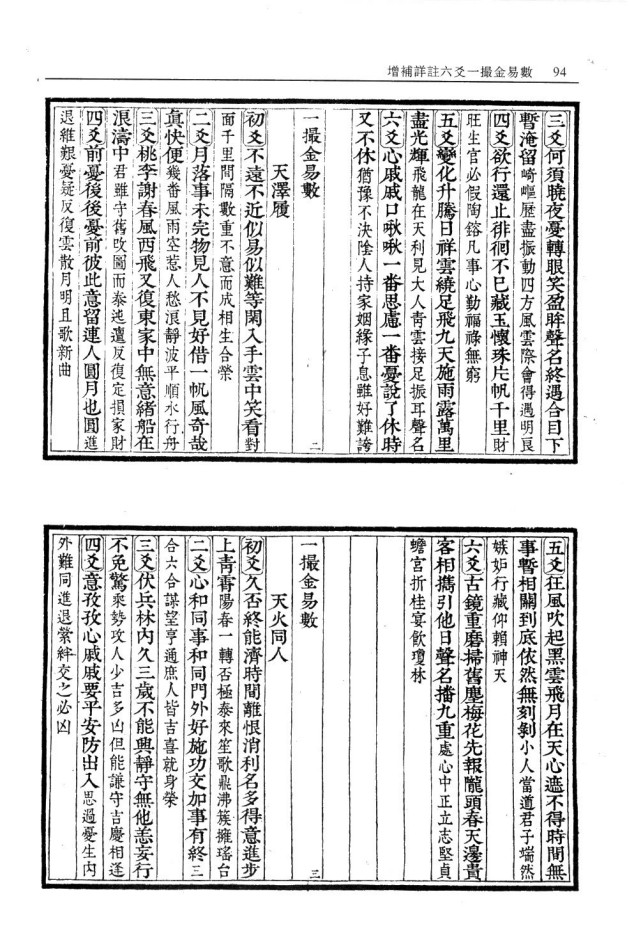 增補詳註六爻一撮金易數 94
三爻何須曉夜憂轉眼笑盈眸聲名終遇合目下
暫淹留崎嶇歷盡振動四方風雲際會得遇明良
四爻欲行還止徘徊不已藏玉懷珠片帆千里財
旺生官必假陶鎔凡事心勤福祿無窮
五爻變化升騰日祥雲繞足飛九天施雨露萬里
盡光輝飛龍在天利見大人青雲接足振耳聲名
六爻心戚戚口啾啾一番思慮一番憂說了休時
又不休猶豫不決陰人持家姻緣子息雖好難誇
一撮金易數 二
天澤履
初爻不遠不近似易似難等閑入手雲中笑看對
面千里間隔數重不意而成相生合榮
二爻月落事未完物見人不見好借一帆風奇哉
真快便幾番風雨空惹人愁浪靜波平順水行舟
三爻桃李謝春風西飛又復東家中無意緒船在
浪濤中君雖守舊改圖而泰迍邅反復定損家財
四爻前憂後後憂前彼此意留連人圓月也圓進
退維艱憂疑反復雲散月明且歌新曲
五爻狂風吹起黑雲飛月在天心遮不得時間無
事暫相關到底依然無刻剝小人當道君子端然
嫉妬行藏仰賴神天
六爻古鏡重磨掃舊塵梅花先報隴頭春天邊貴
客相攜引他日聲名播九重處心中正立志堅貞
蟾宮折桂宴飲瓊林
一撮金易數 三
天火同人
初爻久否終能濟時間離恨消利名多得意進步
上青霄陽春一轉否極泰來笙歌鼎沸簇擁瑤台
二爻心和同事和同門外好施功交加事有終三
合六合謀望亨通庶人皆吉喜就身榮
三爻伏兵林內久三歲不能興靜守無他恙妄行
不免驚乘勢攻人少吉多凶但能謙守吉慶相逢
四爻意孜孜心戚戚要平安防出入思過憂生內
外難同進退縈絆交之必凶